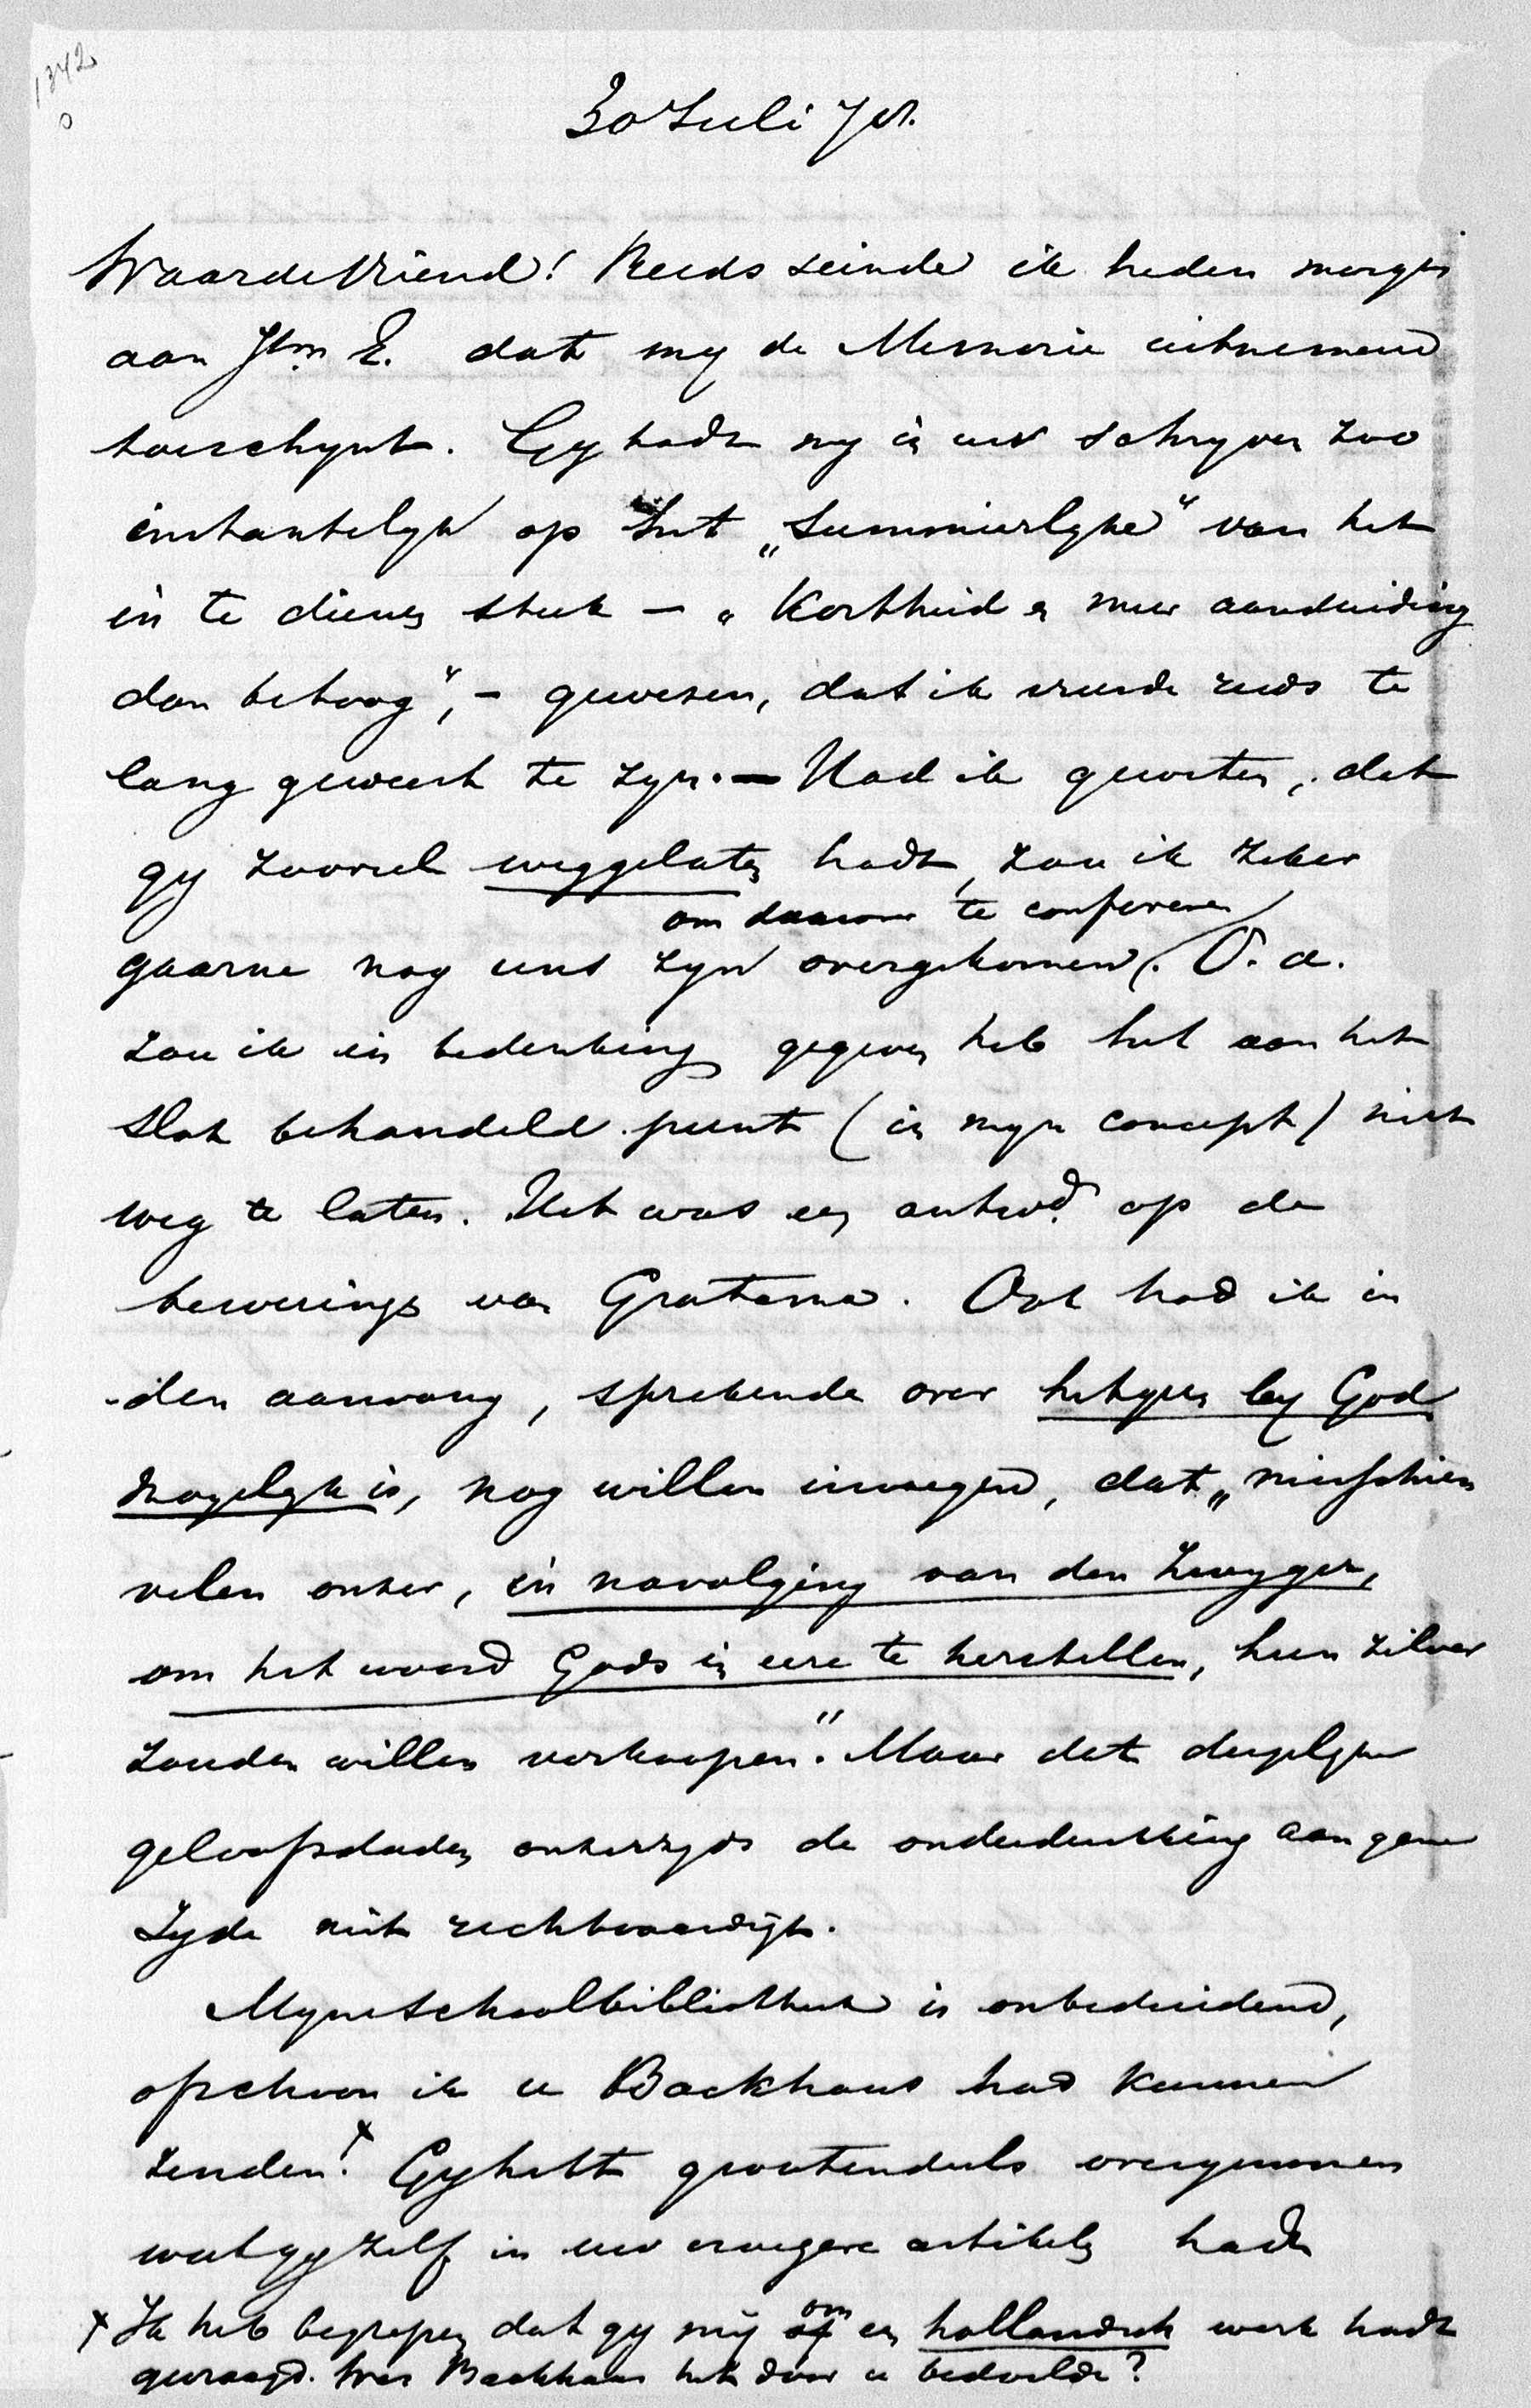 1342
0
30 Juli 78.
Waarde Vriend! Reeds seinde ik heden morgen
aan Jhr. E. dat my de Memorie uitnemend
toeschynt. Gy hadt my in uw schryven zoo
instantelyk op het „Summierlyke" van het
in te dienen stuk — „Kortheid en meer aanduiding
dan betoog", — gewezen, dat ik vreesde reeds te
lang geweest te zyn. — Had ik geweten, dat
gy zooveel weggelaten hadt, zou ik zeker
om daarover te confereren
gaarne nog eens zyn overgekomen. O. a.
zou ik in bedenking gegeven heb het aan het
slot behandeld punt (in myn concept) niet
weg te laten. Het was een antwd. op de
bewering van Gratama. Ook had ik in
den aanvang, sprekende over hetgeen by God
mogelyk is, nog willen invoegen, dat „misschien
velen onzer, in navolging van den Zwyger,
om het woord Gods in eere te herstellen, hun zilver
zouden willen verkoopen." Maar dat dergelyke
geloofsdaden onzerzyds de onderdrukking aan gene
zyde niet rechtvaardigt.
Myne schoolbibliotheek is onbeduidend,
ofschoon ik u Backhaus had kunnen
zenden! x Gy hebt grootendeels overgenomen
wat gy zelf in uw vroegere artikels hadt
x Ik heb begrepen dat gy mij of om een hollandsch werk hadt
gevraagd. Was Backhaus het door u bedoelde?